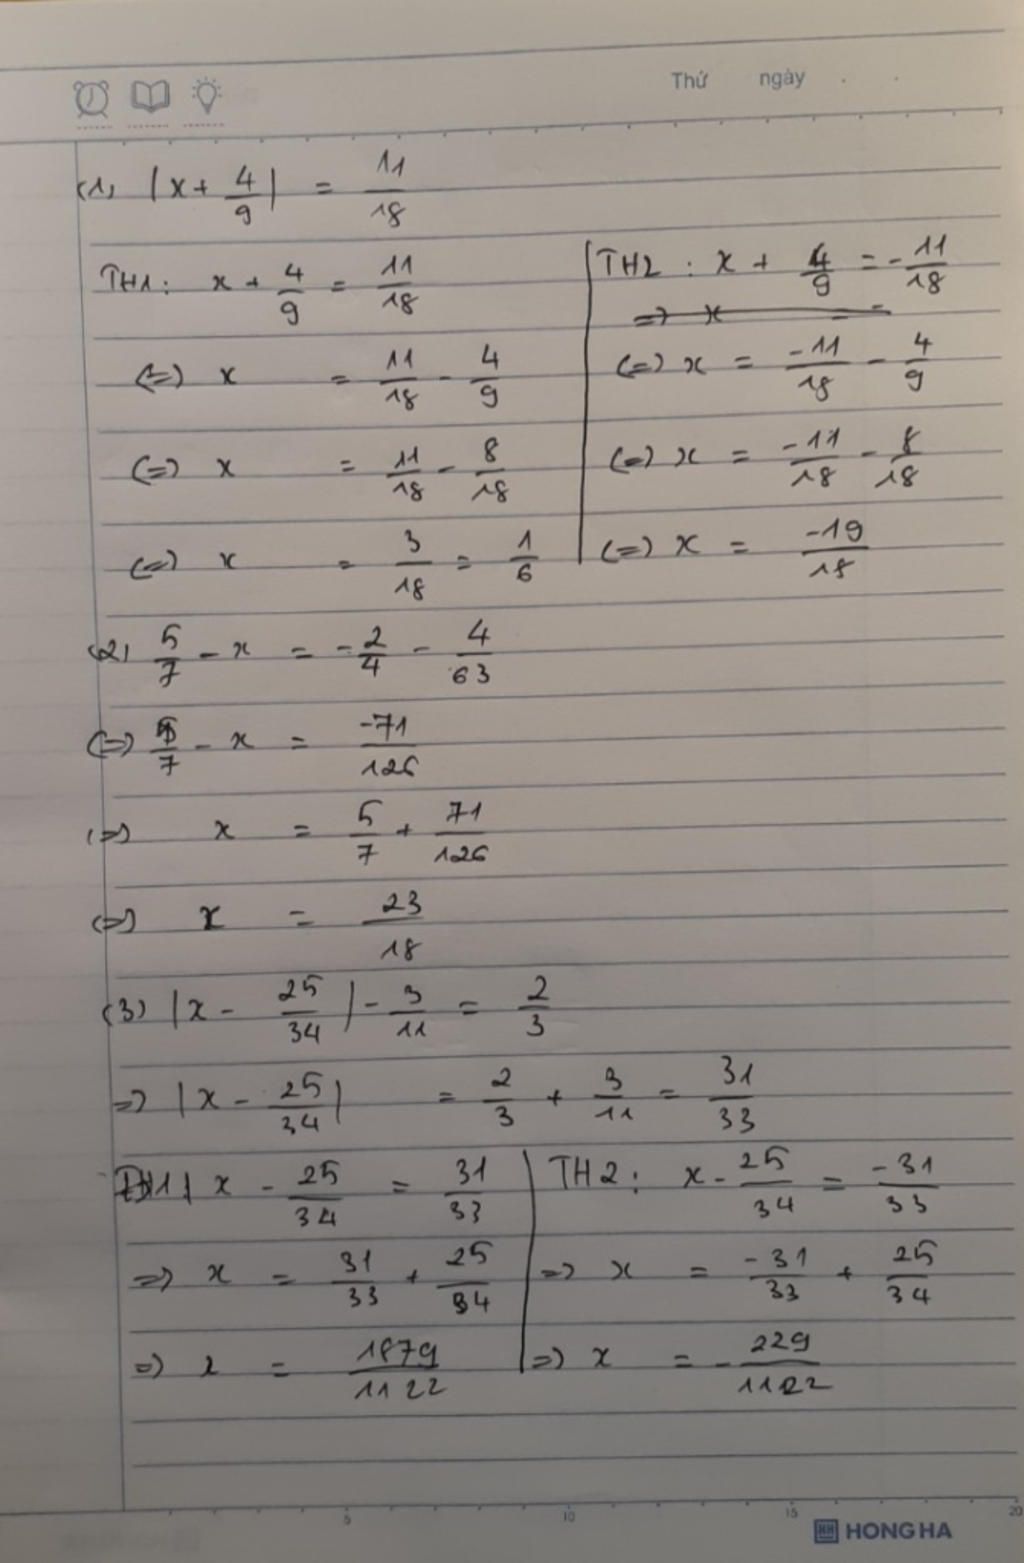 Thứ ngày
(1) |x + 4/9| = 11/18
TH1: x + 4/9 = 11/18
(=) x = 11/18 - 4/9
(=) x = 11/18 - 8/18
(=) x = 3/18 = 1/6
TH2: x + 4/9 = -11/18
=) x
(=) x = -11/18 - 4/9
(=) x = -11/18 - 8/18
(=) x = -19/18
(2) 5/7 - x = -2/4 - 4/63
(=) 5/7 - x = -71/126
(=) x = 5/7 + 71/126
(=) x = 23/18
(3) |x - 25/34| - 3/11 = 2/3
=) |x - 25/34| = 2/3 + 3/11 = 31/33
TH1 | x - 25/34 = 31/33
=) x = 31/33 + 25/34
=) x = 1879/1122
TH2: x - 25/34 = -31/33
=) x = -31/33 + 25/34
=) x = -229/1122
5 10 15 20
HH HONG HA